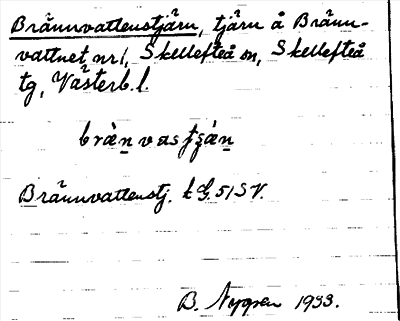 Brännvattenstjärn, tjärn å Bränn-
vattnet nr 1, Skellefteå sn, Skellefteå
tg, Västerb. l.
Brännvattenstj. t G. 51 SV.
B. Nygren 1933.